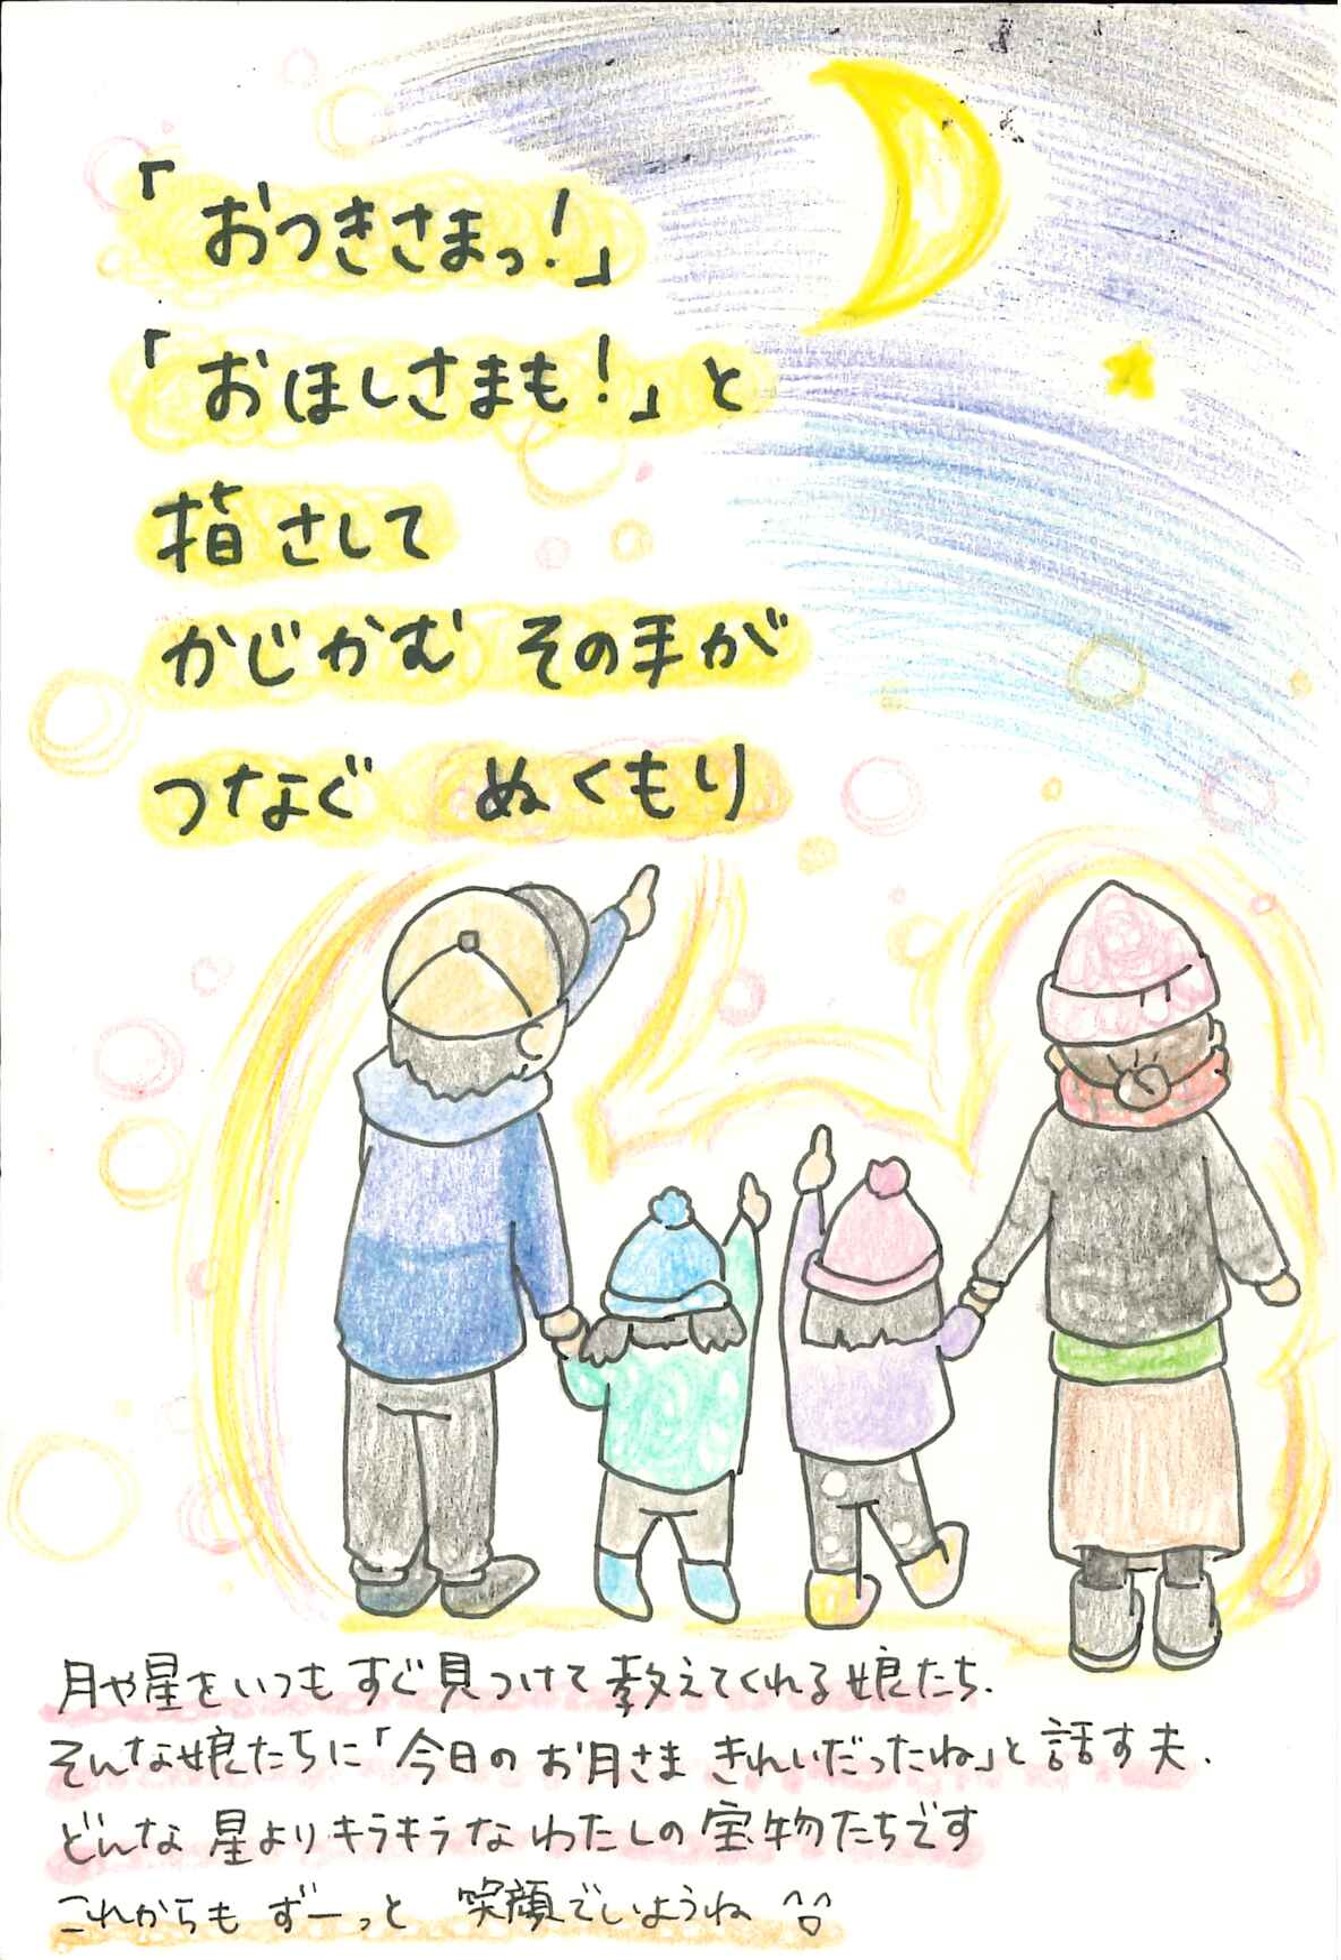 「おつきさまっ!」
「おほしさまも!」と
指さして
かじかむ その手が
つなぐ ぬくもり
月や星をいつも すぐ見つけて 教えてくれる娘たち.
そんな娘たちに「今日の お月さま きれいだったね」と 話す夫.
どんな 星よりキラキラな わたしの 宝物たちです
これからも ずーっと 笑顔でいようね